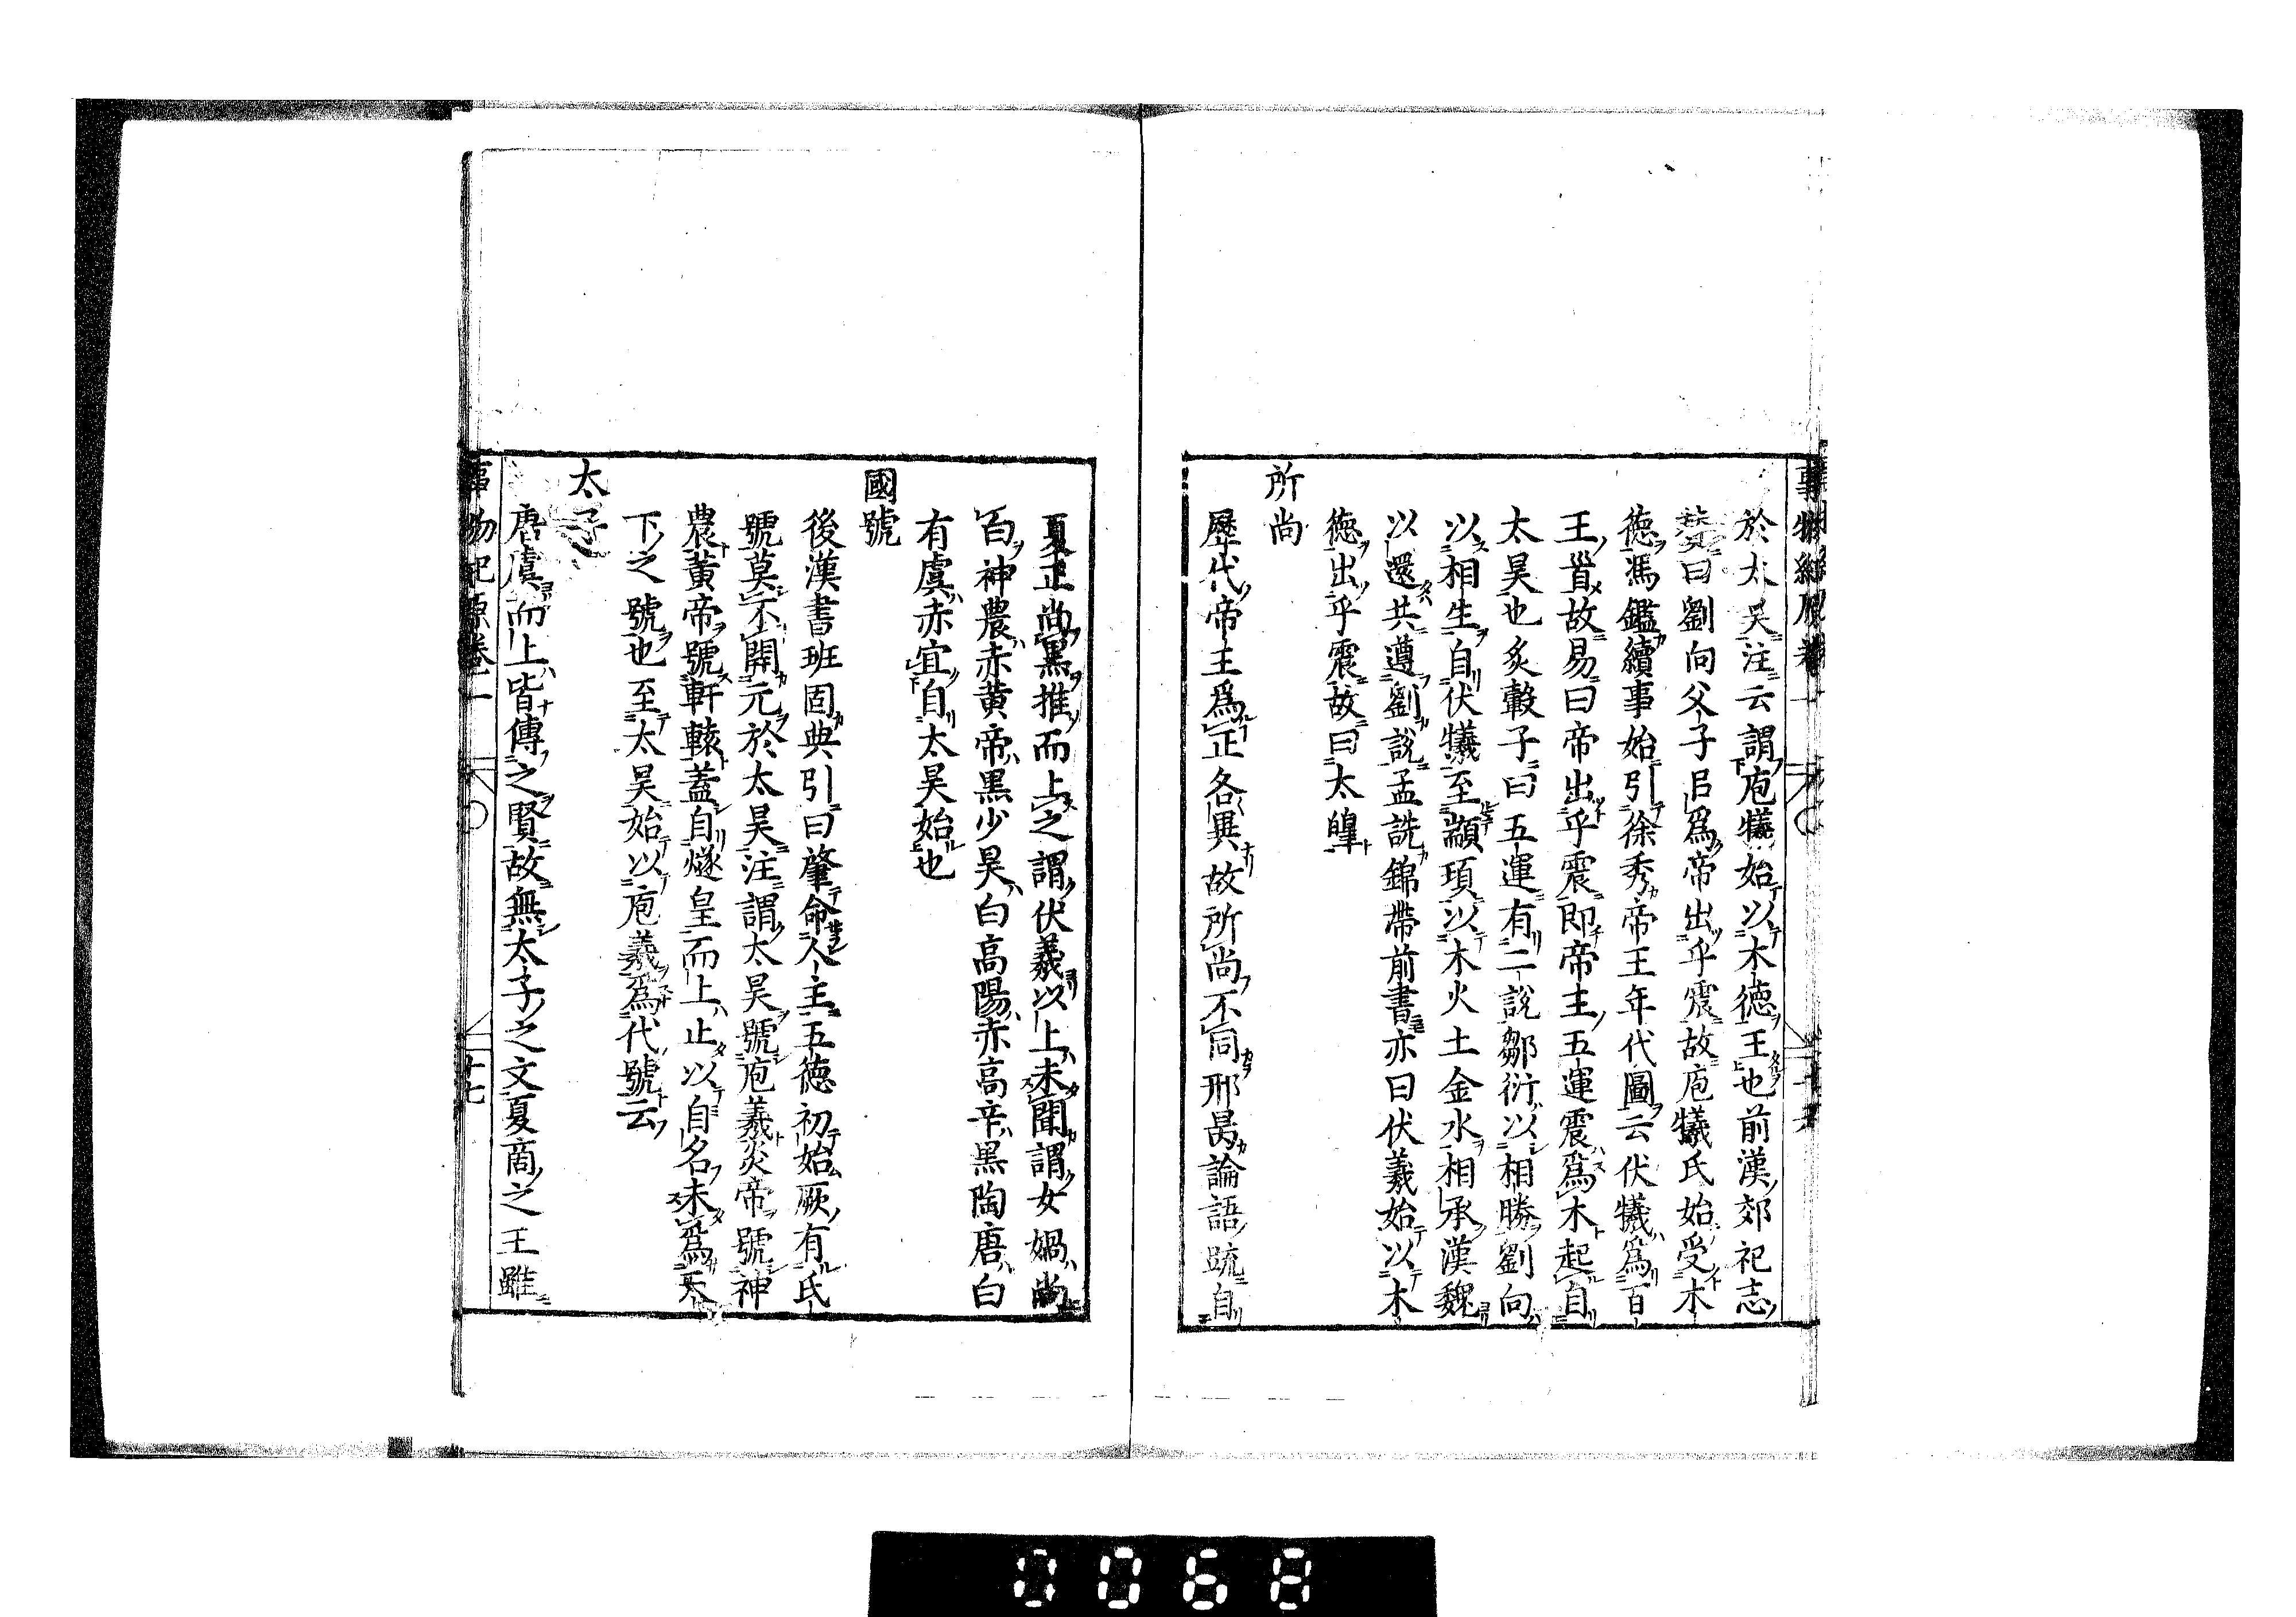 於太昊注云謂庖犧始以木德王也前漢郊祀志
贊曰劉向父子㠯爲帝出乎震故庖犧氏始受木
德馮鑑續事始引徐秀帝王年代圖云伏犧爲百
王首故易曰帝出乎震即帝主五運震爲木起自
太昊也炙轂子曰五運有二說鄒衍以相勝劉向
以相生自伏犧至顓頊以木火土金水相承漢魏
以還共遵劉說孟詵錦帶前書亦曰伏羲始以木
德出乎震故曰太皥
所尚
歷代帝王爲正各異故所尚不同邢昺論語疏自
夏正尚黑推而上之謂伏羲以上未聞謂女媧尚
白神農赤黄帝黒少昊白高陽赤高辛黒陶唐白
有虞赤宜自太昊始也
國號
後漢書班固典引曰肇命人主五德初始厥有氏
號莫不開元於太昊注謂太昊號庖羲炎帝號神
農黃帝號軒轅蓋自燧皇而上止以自名未爲天
下之號也至太昊始以庖羲爲代號云
太子
唐虞而上皆傳之賢故無太子之文夏商之王雖
事物紀原卷一
十七
0068